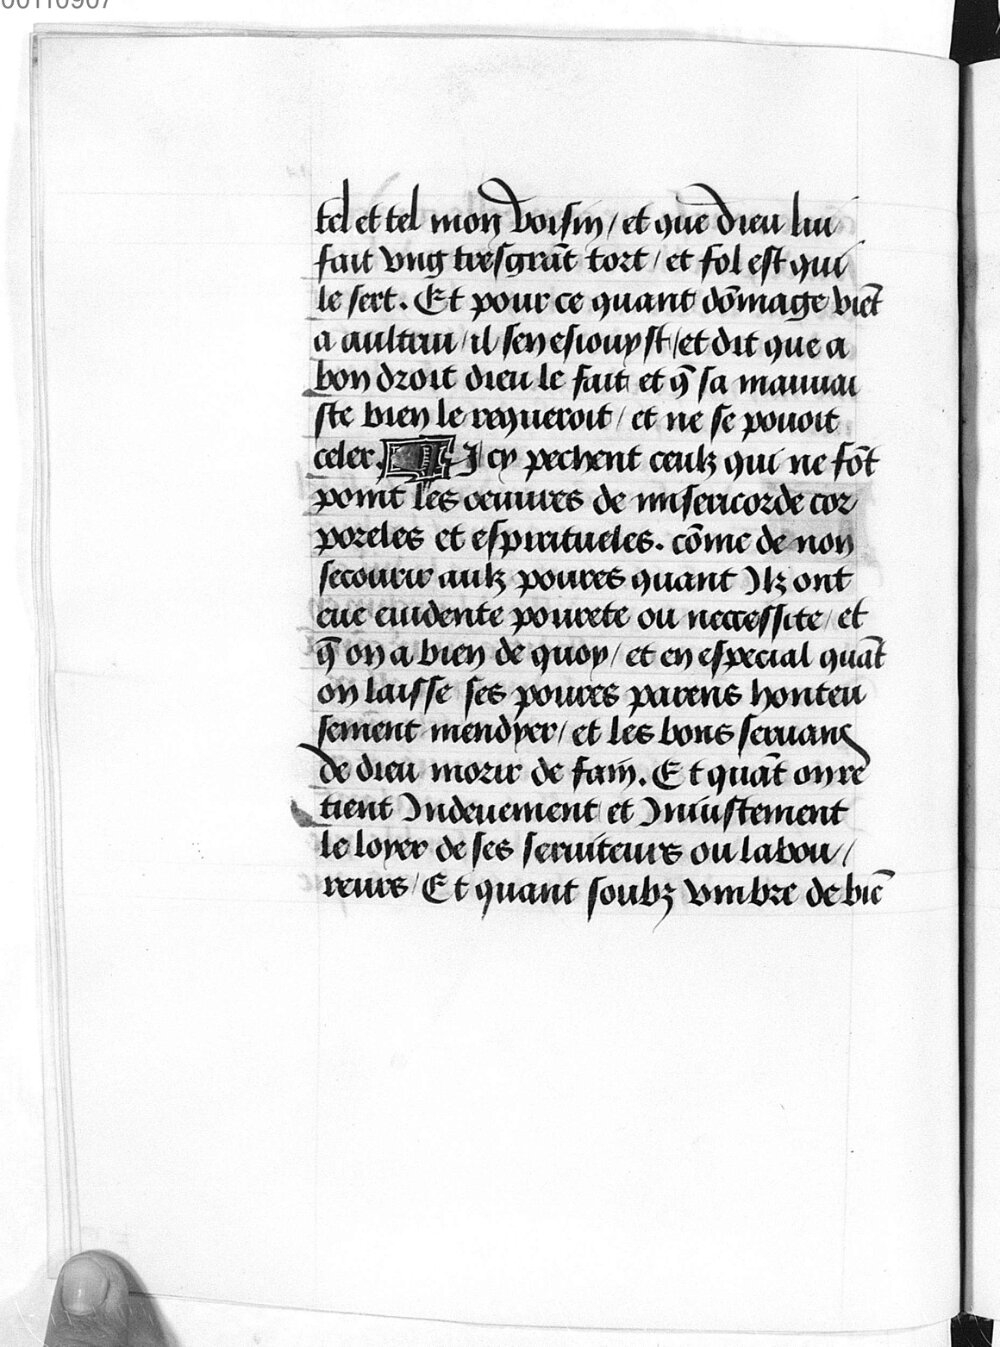 00110907
tel et tel mon voisin / et que dieu lui
fait vng tresgrāt tort / et fol est qui
le sert. Et pour ce quant dōmage viēt
a aultrui / il sen esiouyst / et dit que a
bon droit dieu le fait et q̄ sa mauuai
ste bien le requeroit / et ne se pouoit
celer. ¶ Icy pechent ceulz qui ne fōt
point les oeuures de misericorde cor
poreles et espiritueles. cōme de non
secourir aulz poures quant Ilz ont
eue euidente pourete ou neccessite / et
q̄ on a bien de quoy / et en especial quāt
on laisse ses poures parens honteu
sement mendyer / et les bons seruans
de dieu morir de fain. Et quāt on re
tient Indeuement et Iniustement
le loyer de ses seruiteurs ou labou //
reurs / Et quant soubz vmbre de biē